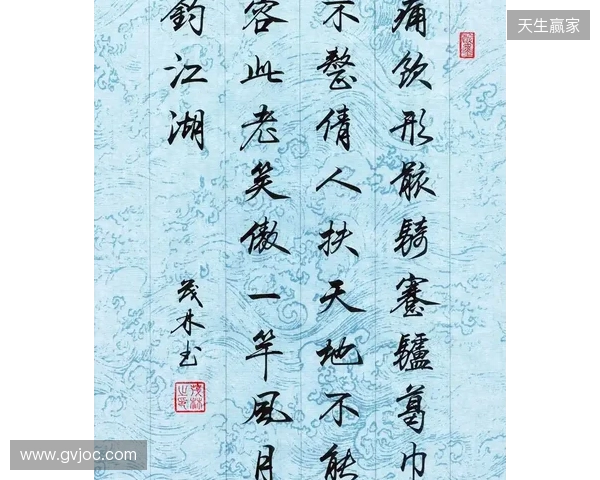 天生赢家
痛饮形骸騎蹇驢葛巾
不整倩人扶天地不能
容此老笑傲一竿風月
釣江湖
茂林书
www.gvjoc.com